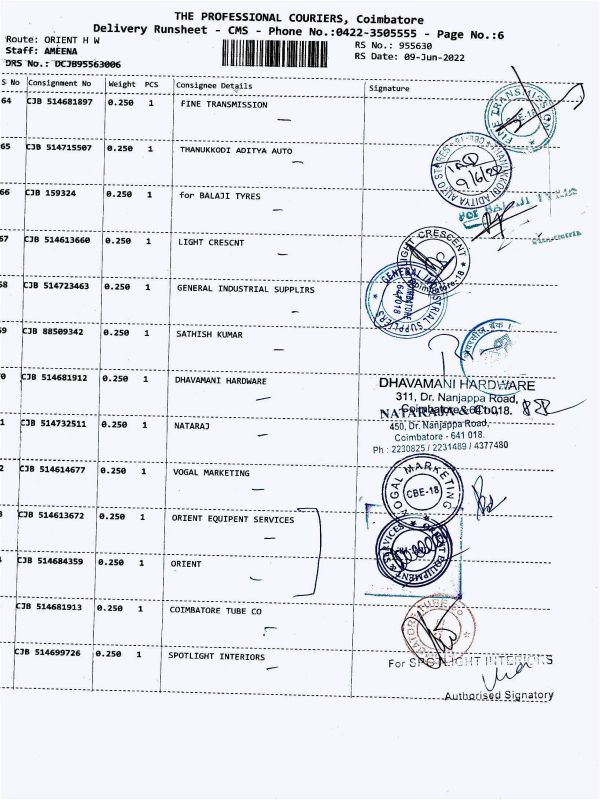 THE PROFESSIONAL COURIERS, Coimbatore
Delivery Runsheet - CMS - Phone No.:0422-3505555 - Page No.:6
Route: ORIENT H W
RS No.: 955630
Staff: AMEENA
RS Date: 09-Jun-2022
DRS No.: DCJB95563006
S No Consignment No Weight PCS Consignee Details Signature
64 CJB 514681897 0.250 1 FINE TRANSMISSION
FINE TRANSMISSION
CBE-18
65 CJB 514715507 0.250 1 THANUKKODI ADITYA AUTO
THANUKKODI ADITYA AUTO STORES
9/6/22
66 CJB 159324 0.250 1 for BALAJI TYRES
For BALAJI
67 CJB 514613660 0.250 1 LIGHT CRESCNT
LIGHT CRESCENT
Coimbatore-18
68 CJB 514723463 0.250 1 GENERAL INDUSTRIAL SUPPLIRS
GENERAL INDUSTRIAL SUPPLIERS
COIMBATORE
641018
69 CJB 88509342 0.250 1 SATHISH KUMAR
0 CJB 514681912 0.250 1 DHAVAMANI HARDWARE
DHAVAMANI HARDWARE
311, Dr. Nanjappa Road,
Coimbatore - 641 018.
1 CJB 514732511 0.250 1 NATARAJ
NATARAJA & Co.,
450, Dr. Nanjappa Road,
Coimbatore - 641 018.
Ph : 2230825 / 2231489 / 4377480
2 CJB 514614677 0.250 1 VOGAL MARKETING
VOGAL MARKETING
CBE-18
3 CJB 514613672 0.250 1 ORIENT EQUIPENT SERVICES
ORIENT EQUIPMENT & SERVICES
CJB 514684359 0.250 1 ORIENT
CJB 514681913 0.250 1 COIMBATORE TUBE CO
TUBE CO
CJB 514699726 0.250 1 SPOTLIGHT INTERIORS
For SPOTLIGHT INTERIORS
Authorised Signatory